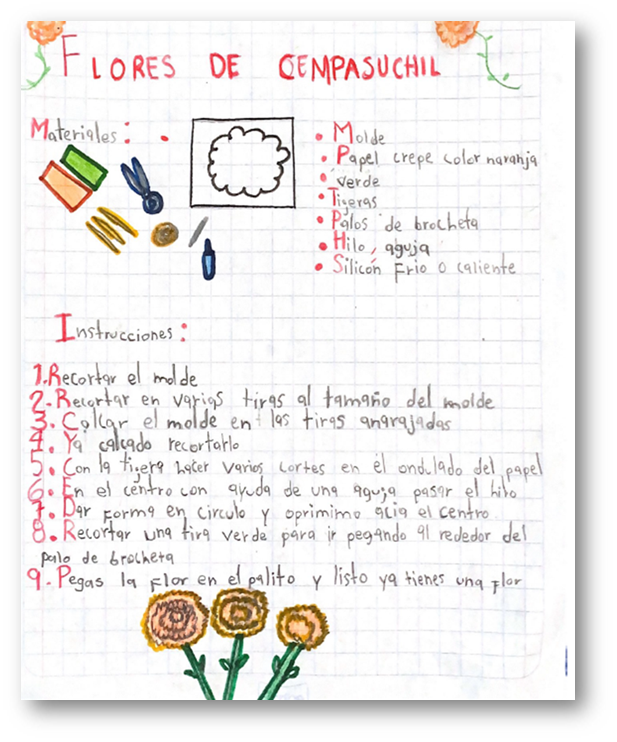 FLORES DE CEMPASUCHIL
Materiales:
• Molde
• Papel crepe color naranja
• verde
• Tijeras
• Palos de brocheta
• Hilo, aguja
• Silicón Frio o caliente
Instrucciones:
1. Recortar el molde
2. Recortar en varias tiras al tamaño del molde
3. Calcar el molde en las tiras anarajadas
4. Ya calcado recortarlo
5. Con la tijera hacer varios cortes en él ondulado del papel
6. En el centro con ayuda de una aguja pasar el hilo
7. Dar forma en circulo y oprimimo acia el centro
8. Recortar una tira verde para ir pegando al rededor del
palo de brocheta
9. Pegas la flor en el palito y listo ya tienes una flor